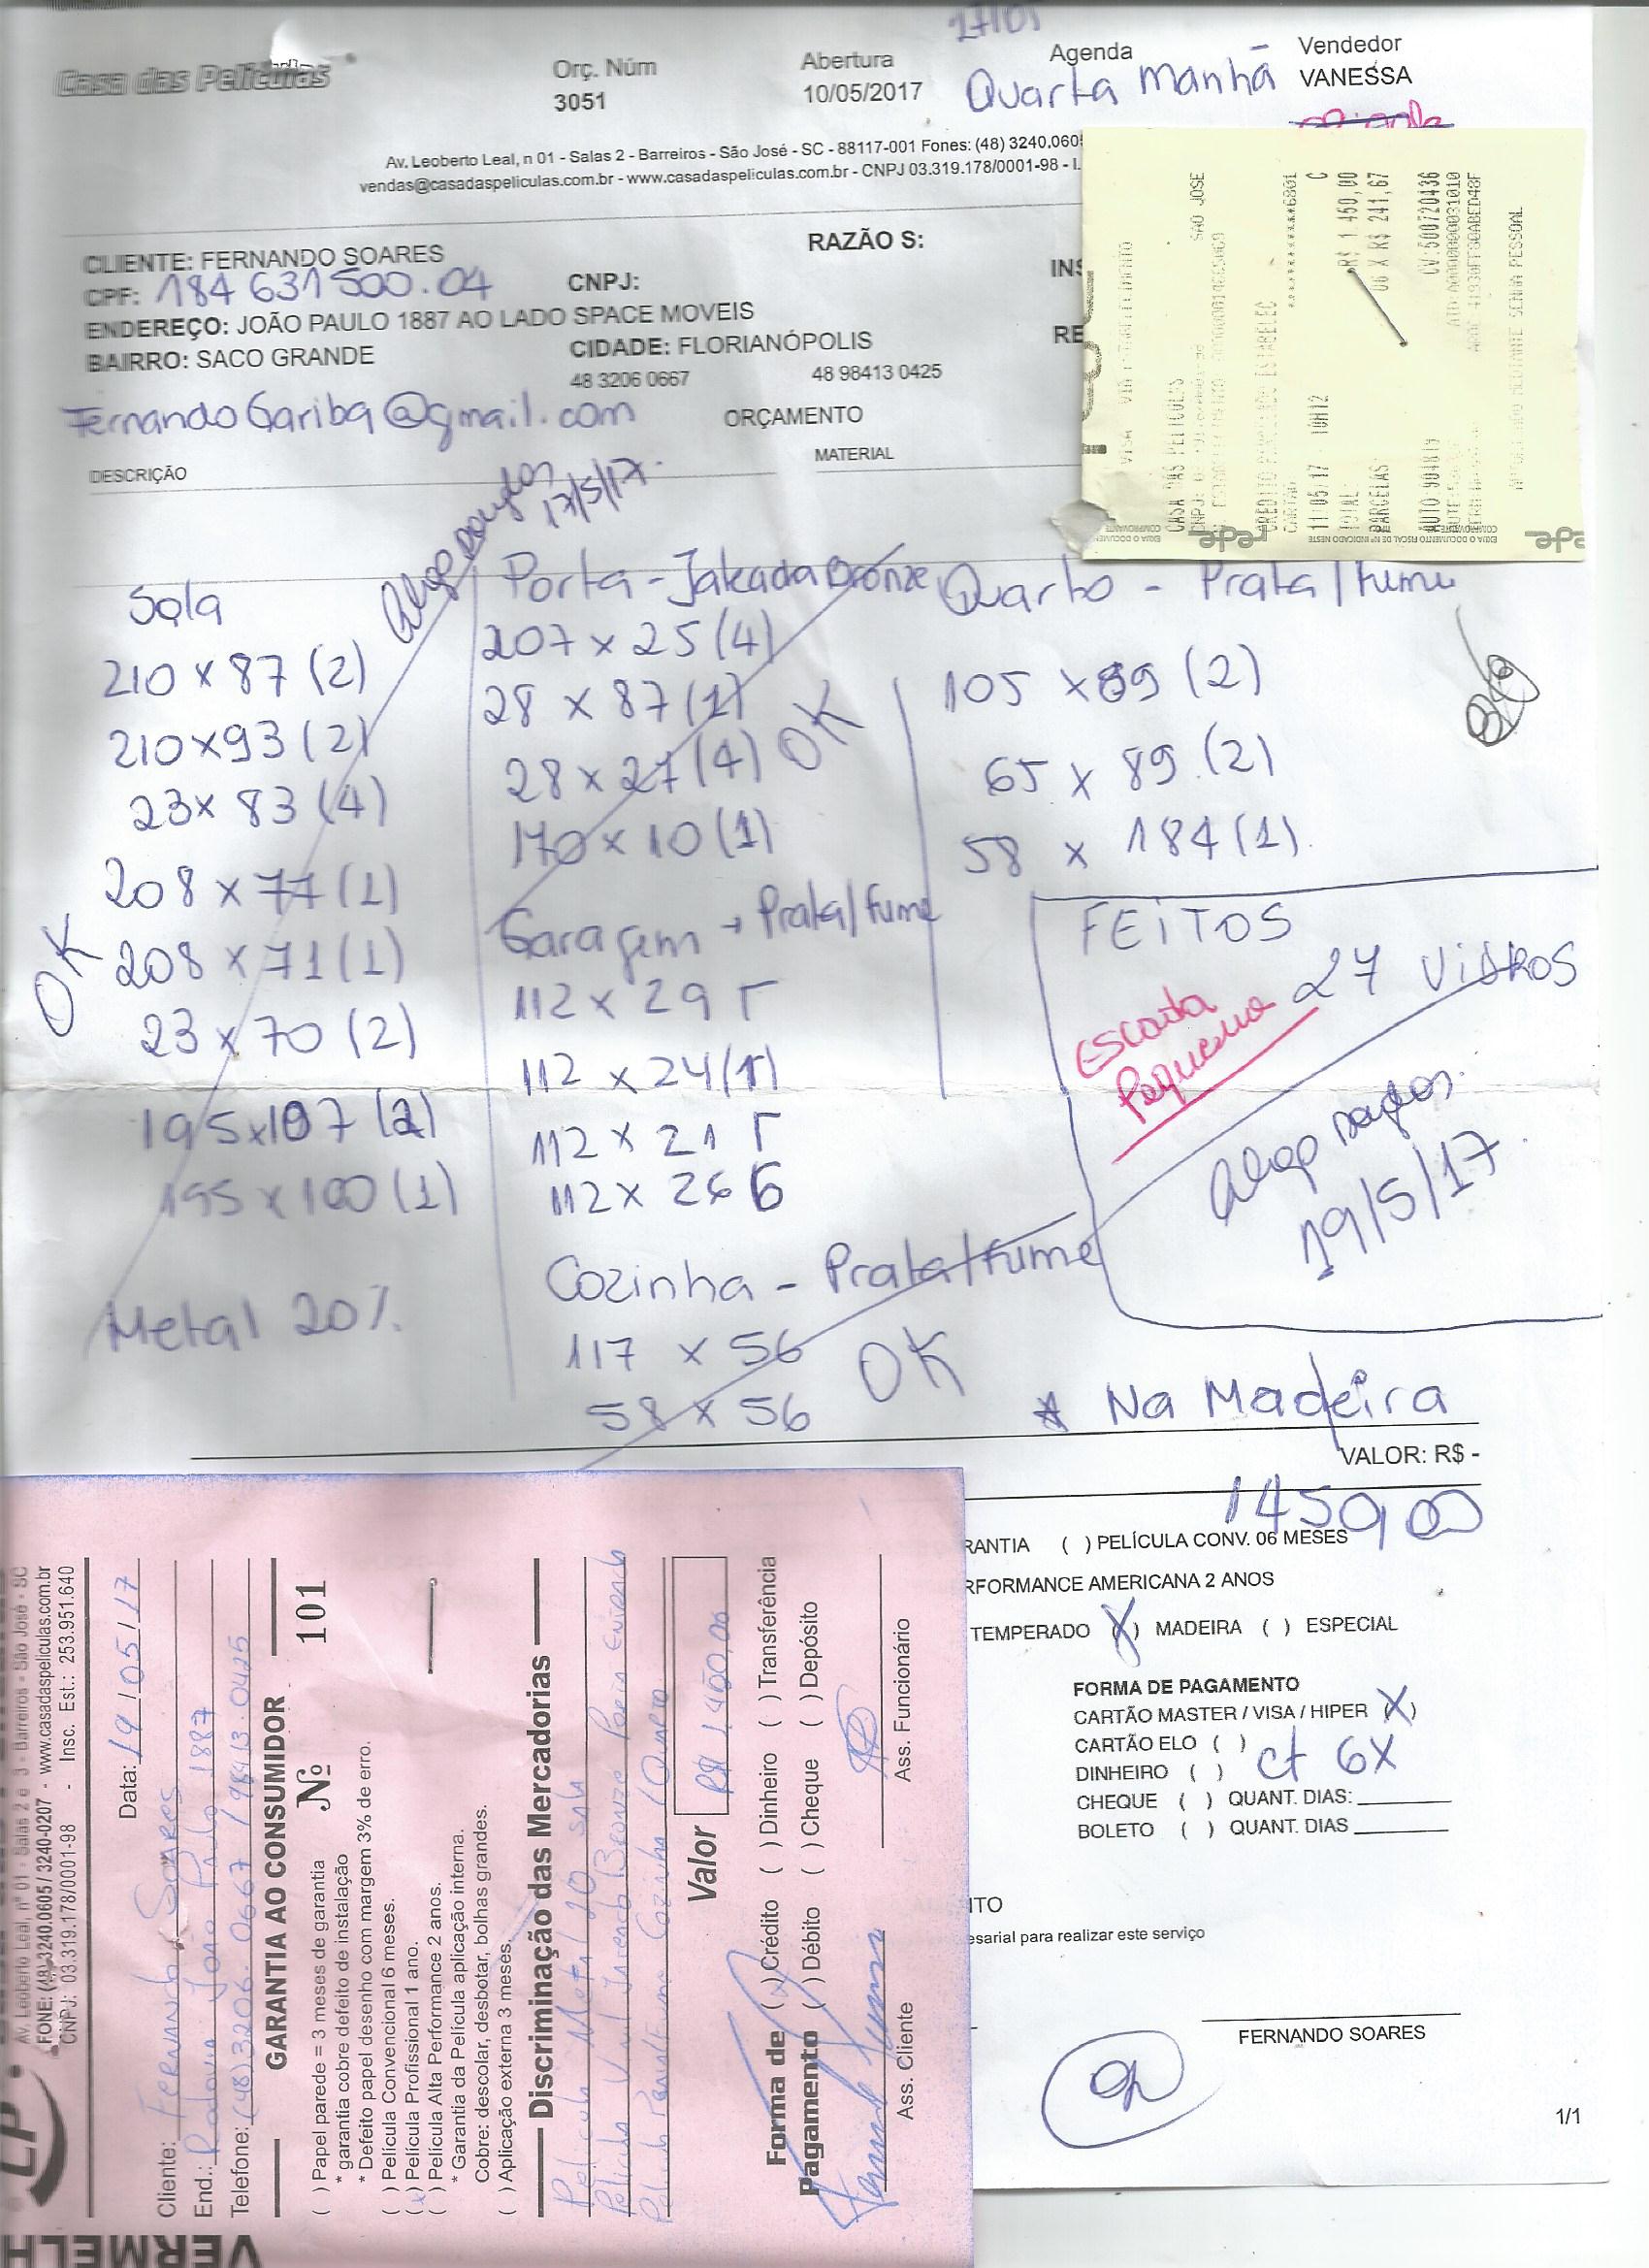 Casa das Películas
Orç. Núm
3051
Abertura
10/05/2017
17/05
Agenda
Quarta Manhã
Vendedor
VANESSA
Av. Leoberto Leal, n 01 - Salas 2 - Barreiros - São José - SC - 88117-001 Fones: (48) 3240.060
vendas@casadaspeliculas.com.br - www.casadaspeliculas.com.br - CNPJ 03.319.178/0001-98 - I.
CLIENTE: FERNANDO SOARES
RAZÃO S:
CPF: 184 631 500.04
CNPJ:
INS
ENDEREÇO: JOÃO PAULO 1887 AO LADO SPACE MOVEIS
BAIRRO: SACO GRANDE
CIDADE: FLORIANÓPOLIS
RE
48 3206 0667
48 98413 0425
FernandoGariba@gmail.com
ORÇAMENTO
DESCRIÇÃO
MATERIAL
17/5/17.
Sala
210 x 87 (2)
210x93 (2)
23x 83 (4)
208 x 77 (1)
208 x 71 (1)
23 x 70 (2)
195x107 (2)
195 x 100 (1)
Metal 20%
OK
Porta - Jateada Bronze
207 x 25 (4)
28 x 87 (1)
28 x 27 (4) OK
170 x 10 (1)
Garagem → Prata/fume
112 x 29
112 x 24 (1)
112 x 21
112 x 26
Cozinha - Prata/fume
117 x 56
58 x 56
OK
Quarto - Prata/fume
105 x 89 (2)
65 x 89 (2)
58 x 184 (1)
FEITOS
27 Vidros
Escada
Pequena
19/5/17.
* Na Madeira
VALOR: R$ -
1450,00
RANTIA ( ) PELÍCULA CONV. 06 MESES
RFORMANCE AMERICANA 2 ANOS
TEMPERADO (X) MADEIRA ( ) ESPECIAL
FORMA DE PAGAMENTO
CARTÃO MASTER / VISA / HIPER (X)
CARTÃO ELO ( )
DINHEIRO ( )
ct 6X
CHEQUE ( ) QUANT. DIAS:
BOLETO ( ) QUANT. DIAS
NTO
esarial para realizar este serviço
FERNANDO SOARES
1/1
rede
VISA
CASA DAS PELICULAS
SAO JOSE
CREDITO PARCELADO ESTABELEC
CARTAO
************6801
11/05/17 10H12 C
TOTAL: R$ 1.450,00
PARCELAS: 06 X R$ 241,67
CV:500720436
SENHA PESSOAL
VERMELH
Av. Leoberto Leal, nº 01 - Salas 2 e 3 - Barreiros - São José - SC
FONE: (48) 3240.0605 / 3240-0207 - www.casadaspeliculas.com.br
CNPJ: 03.319.178/0001-98 - Insc. Est.: 253.951.640
Data: 19/05/17
Cliente: Fernando Soares
End.: Rodovia João Paulo 1887
Telefone: (48) 3206.0667 / 98413.0425
GARANTIA AO CONSUMIDOR Nº 101
( ) Papel parede = 3 meses de garantia
* garantia cobre defeito de instalação
* Defeito papel desenho com margem 3% de erro.
( ) Película Convencional 6 meses.
(x) Película Profissional 1 ano.
( ) Película Alta Performance 2 anos.
* Garantia da Película aplicação interna.
Cobre: descolar, desbotar, bolhas grandes.
( ) Aplicação externa 3 meses.
Discriminação das Mercadorias
Película Metal 20 sala
Valor R$ 1.450,00
Forma de Pagamento
(x) Crédito ( ) Dinheiro ( ) Transferência
( ) Débito ( ) Cheque ( ) Depósito
Ass. Cliente
Ass. Funcionário